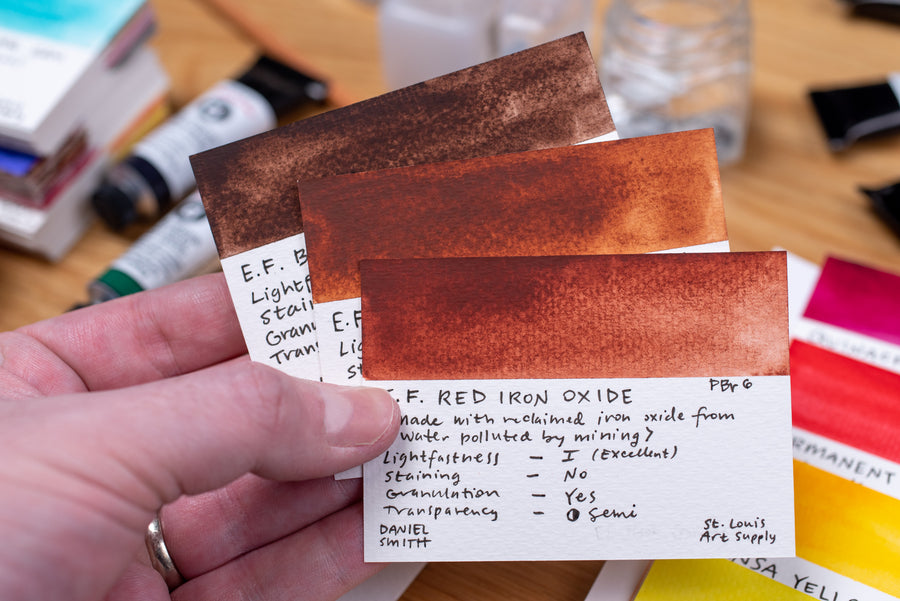 E.F. B
Lightf
Stai
Granu
Tran
E.F
Li
S
.F. RED IRON OXIDE
PBr 6
made with reclaimed iron oxide from
water polluted by mining>
Lightfastness – I (Excellent)
Staining – No
Granulation – Yes
Transparency – Semi
DANIEL
SMITH
St. Louis
Art Supply
RMANENT
NSA YELLO